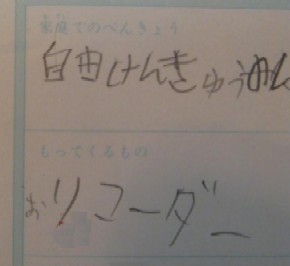 家庭でのべんきょう
自由けんきゅう
もってくるもの
お リコーダー